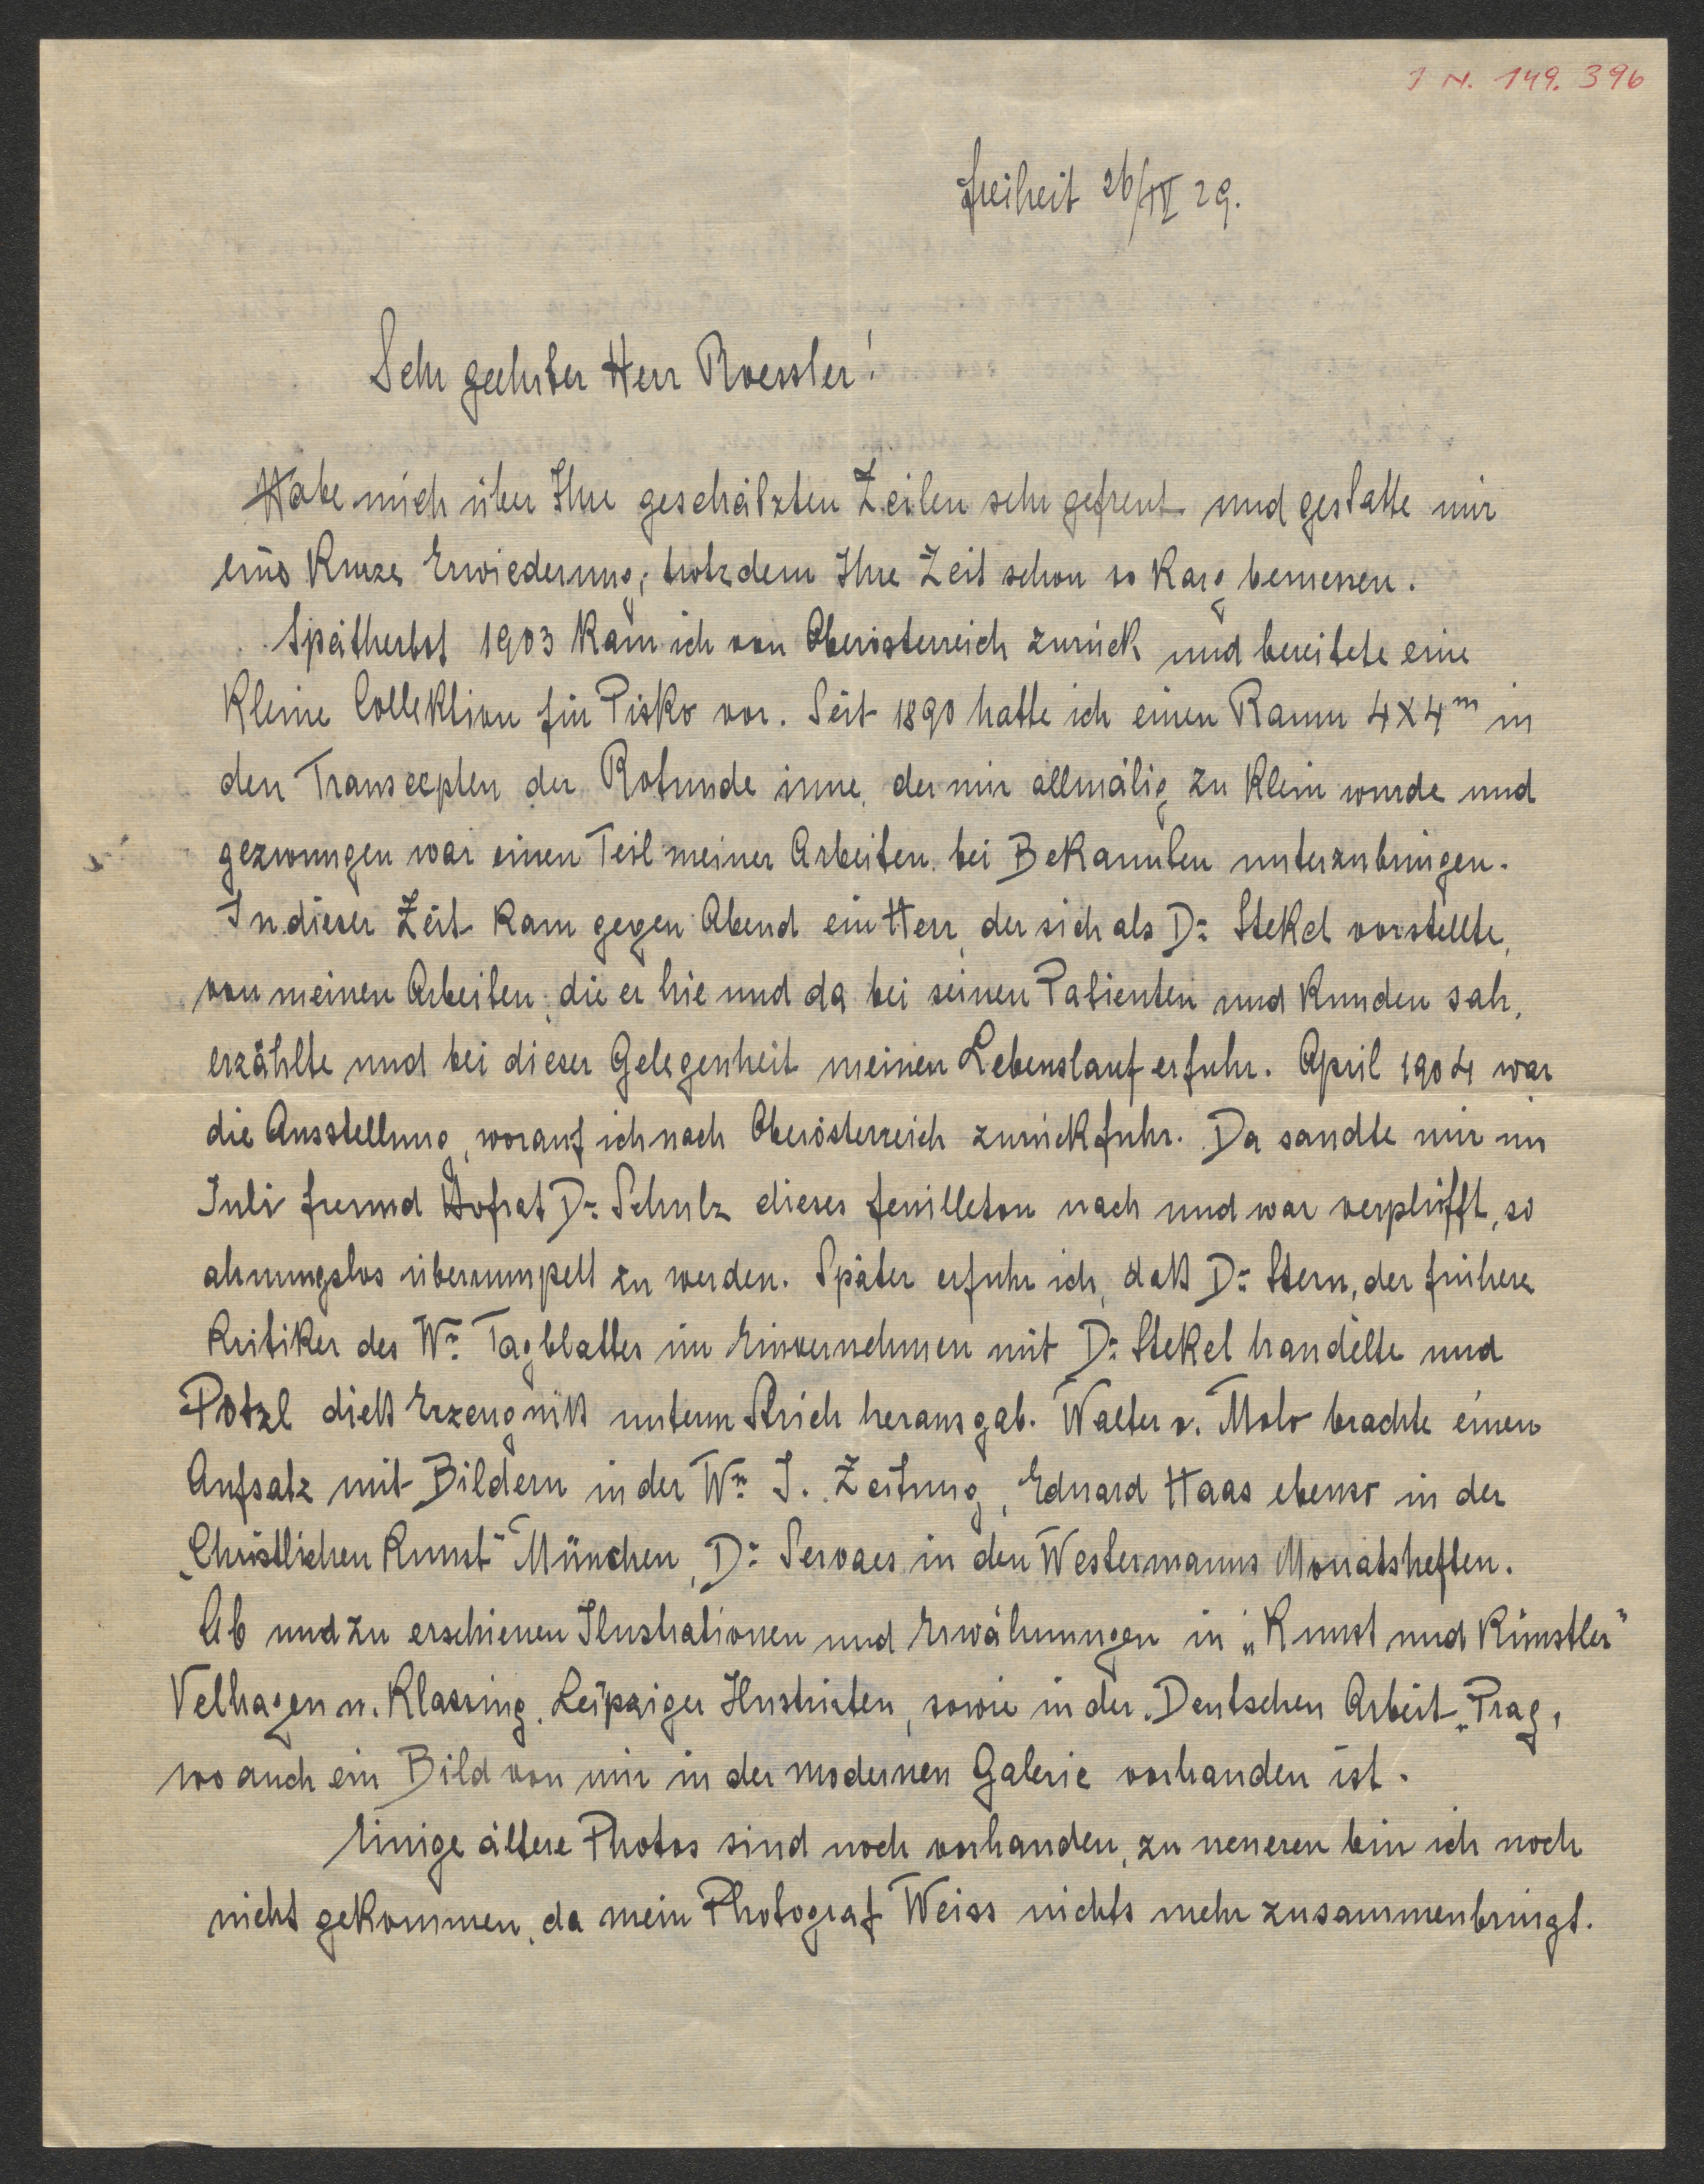 I N. 149.396
Freiheit 26/IV 29.
Sehr geehrter Herr Roessler!
Habe mich über Ihre geschätzten Zeilen sehr gefreut und gestatte mir
eine kurze Erwiederung, trotzdem Ihre Zeit schon so karg bemessen.
Spätherbst 1903 kam ich von Oberösterreich zurück und bereitete eine
kleine Collektion für Pisko vor. Seit 1890 hatte ich einen Raum 4X4m in
den Transcepten der Rotunde inne, der mir allmälig zu klein wurde und
gezwungen war einen Teil meiner Arbeiten bei Bekannten unterzubringen.
In dieser Zeit kam gegen Abend ein Herr, der sich als Dr Stekel vorstellte,
von meinen Arbeiten, die er hie und da bei seinen Patienten und Kunden sah,
erzählte und bei dieser Gelegenheit meinen Lebenslauf erfuhr. April 1904 war
die Ausstellung, worauf ich nach Oberösterreich zurückfuhr. Da sandte mir im
Juli Freund Hofrat Dr Schulz dieses Feuilleton nach und war verplüfft, so
ahnungslos überrumpelt zu werden. Später erfuhr ich, daß Dr Stern, der frühere
Kritiker des Wr Tagblattes im Einvernehmen mit Dr Stekel handelte und
Pötzl dieß Erzeugniß unterm Strich herausgab. Walter v. Molo brachte einen
Aufsatz mit Bildern in der Wr I. Zeitung, Eduard Haas ebenso in der
„Christlichen Kunst" München, Dr Servaes in den Westermanns Monatsheften.
Ab und zu erschienen Ilustrationen und Erwähnungen in „Kunst und Künstler"
Velhagen u. Klassing, Leipziger Ilustrirten, sowie in der „Deutschen Arbeit" Prag,
wo auch ein Bild von mir in der modernen Galerie vorhanden ist.
Einige ältere Photos sind noch vorhanden, zu neueren bin ich noch
nicht gekommen, da mein Photograf Weiss nichts mehr zusammenbringt.